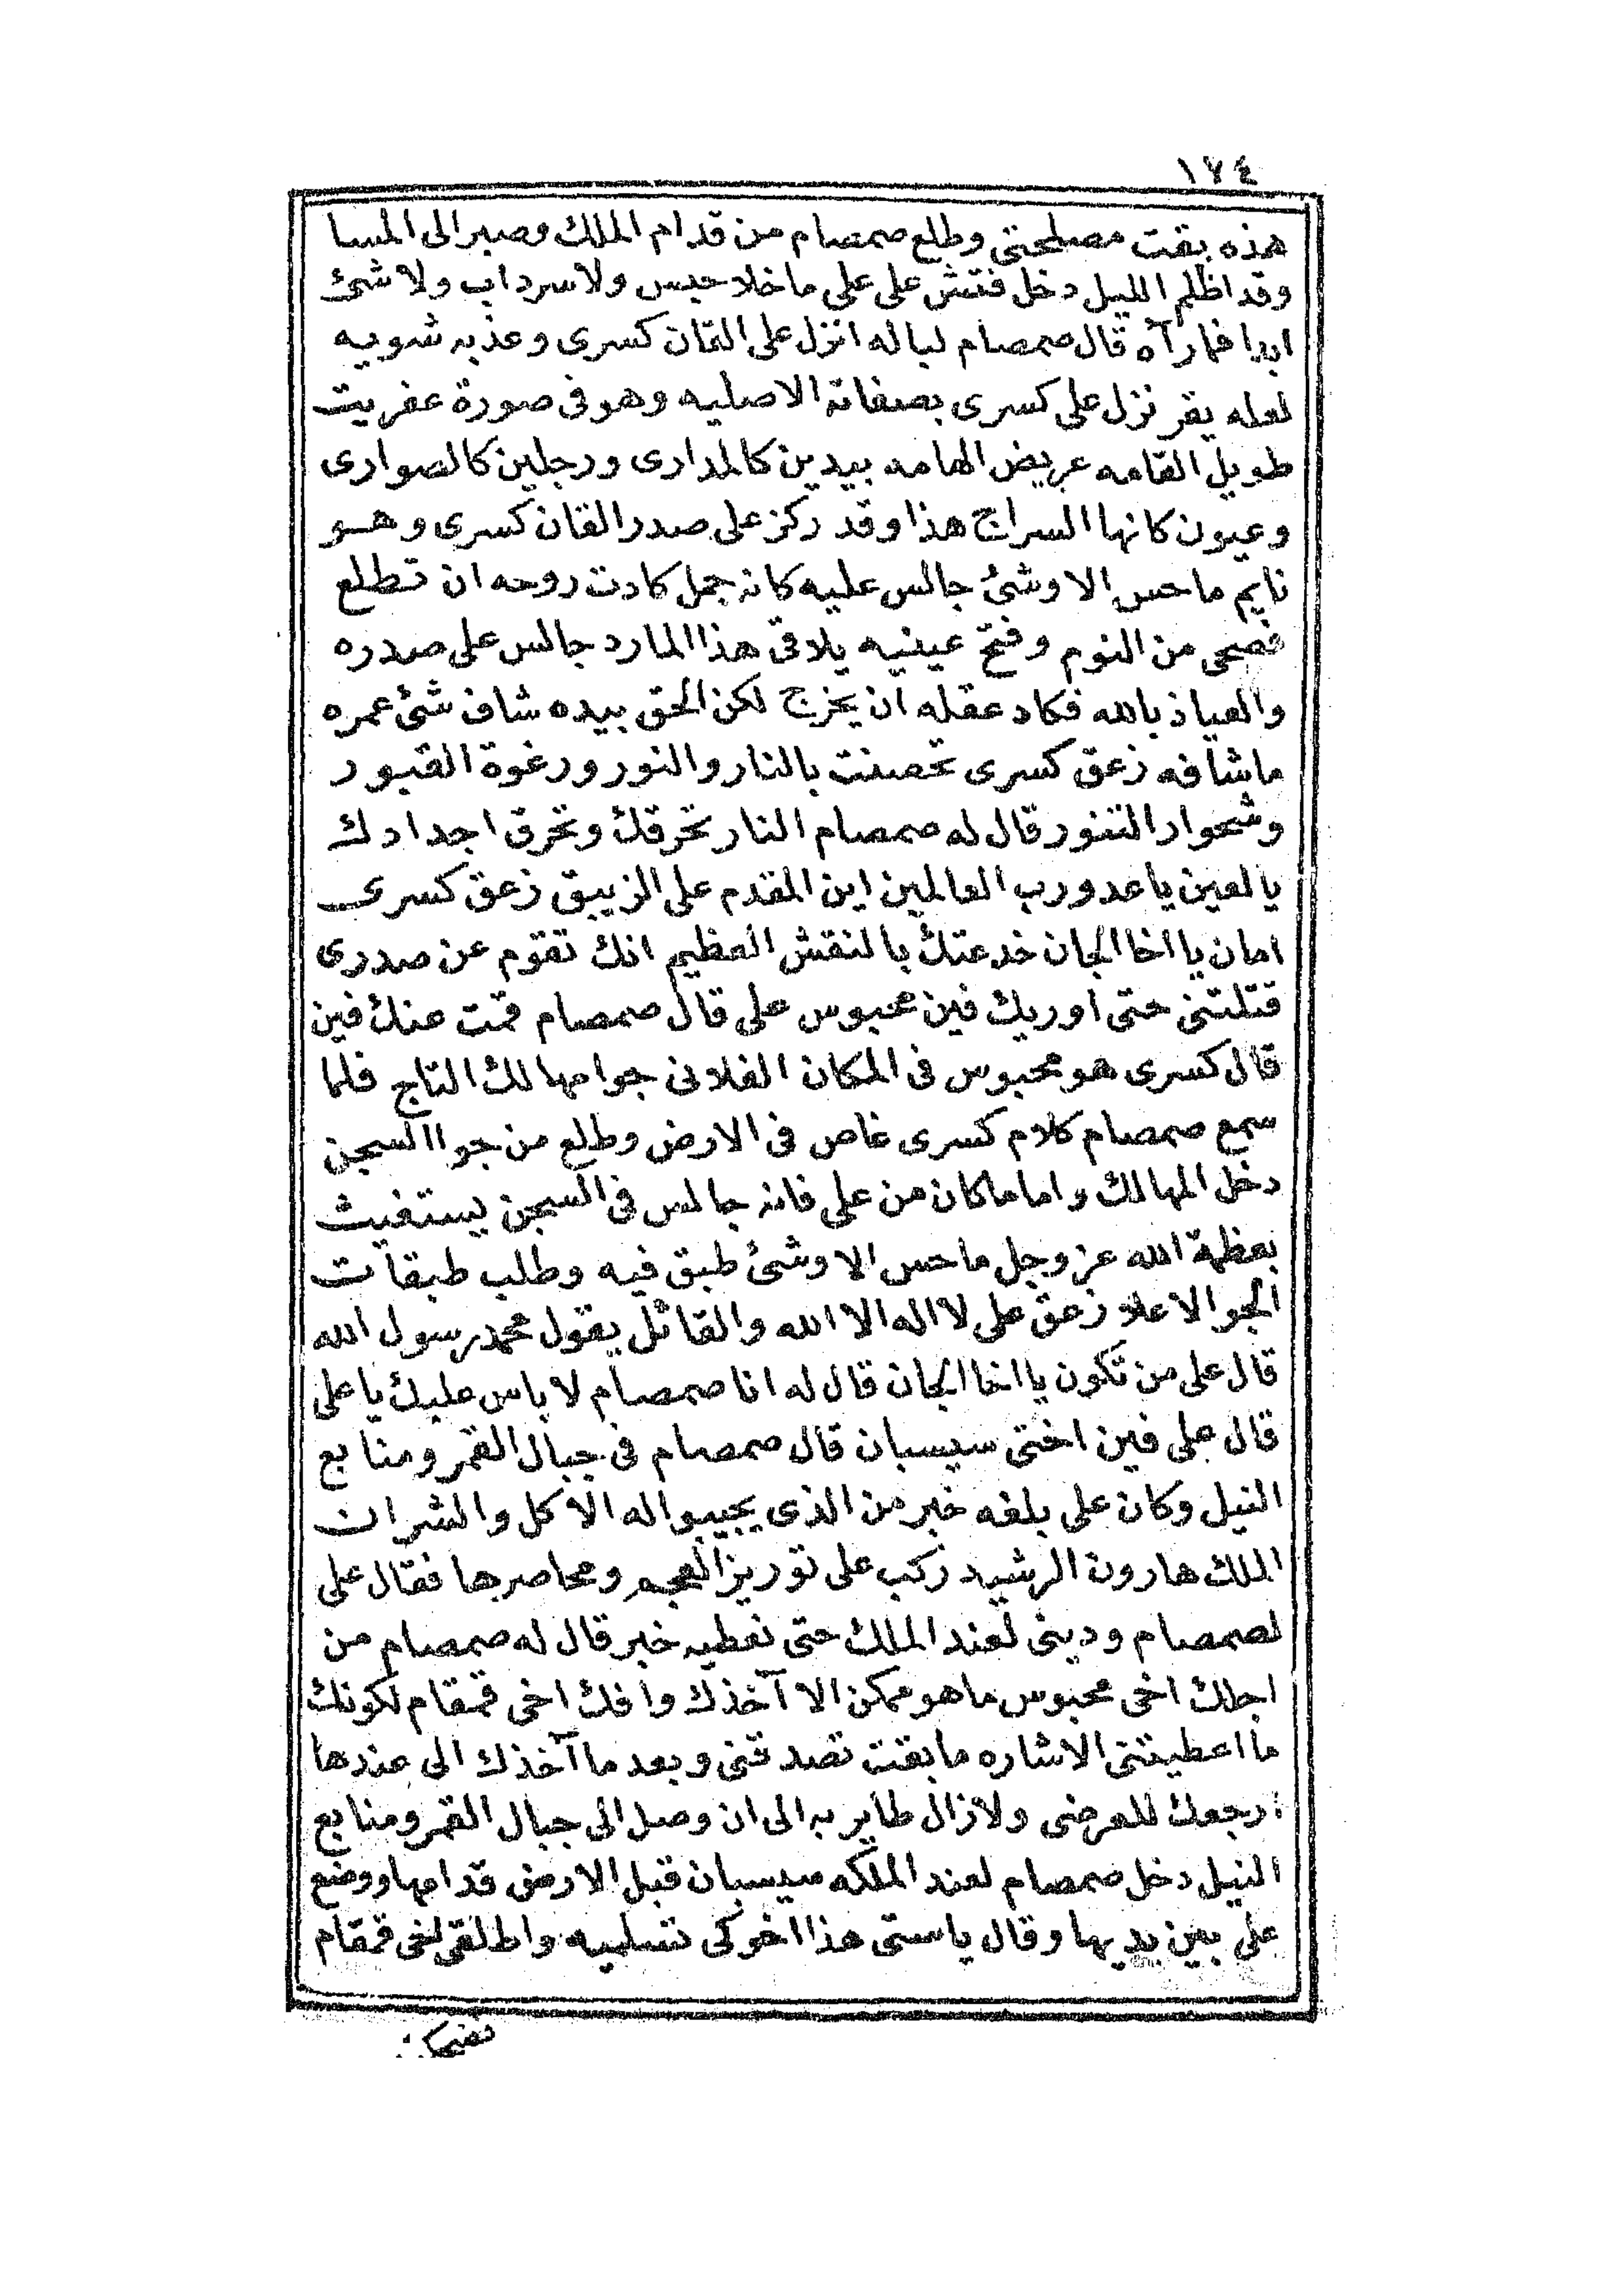 ١٧٤
هذه بقت مصلحتى وطلع صمصام من قدام الملك وصبر الى المسا
وقد اظلم الليل دخل فتش على على ما خلا حبس ولا سرداب ولا شئ
ابدا فما رآه قال صمصام لباله انزل على القان كسرى وعذبه شوييه
لعله يقر نزل على كسرى بصفاته الاصليه وهو فى صورة عفريت
طويل القامه عريض الهامه بيدين كالمدارى ورجلين كالصوارى
وعيون كانها السراج هذا وقد ركز على صدر القان كسرى وهو
نايم ما حس الا وشئ جالس عليه كانه جمل كادت روحه ان تطلع
فصحى من النوم وفتح عينيه يلاقى هذا المارد جالس على صدره
والعياذ بالله فكاد عقله ان يخرج لكن الحق بيده شاف شئ عمره
ما شافه زعق كسرى تحصنت بالنار والنور ورغوة القبور
وشحوار التنور قال له صمصام النار تحرقك وتحرق اجدادك
يا لعين يا عدو رب العالمين اين المقدم على الزيبق زعق كسرى
امان يا اخا الجان خدعتك بالنقش العظيم انك تقوم عن صدرى
قتلتنى حتى اوريك فين محبوس على قال صمصام قمت عنك فين
قال كسرى هو محبوس فى المكان الفلانى جوا مهالك التاج فلما
سمع صمصام كلام كسرى غاص فى الارض وطلع من جوا السجن
دخل المهالك واما ما كان من على فانه جالس فى السجن يستغيث
بعظمة الله عز وجل ما حس الا وشئ طبق فيه وطلب طبقات
الجو الاعلا زعق على لا اله الا الله والقائل يقول محمد رسول الله
قال على من تكون يا اخا الجان قال له انا صمصام لا باس عليك يا على
قال على فين اختى سيسبان قال صمصام فى جبال القمر ومنابع
النيل وكان على بلغه خبر من الذى يجيبوا له الاكل والشراب
الملك هارون الرشيد ركب على توريز العجم ومحاصرها فقال على
لصمصام ودينى لعند الملك حتى نعطيه خبر قال له صمصام من
اجلك اخى محبوس ما هو ممكن الا آخذك وافك اخى قمقام لكونك
ما اعطيتنى الاشاره ما بقت تصدقنى وبعد ما آخذك الى عندها
ارجعك للعرضى ولازال طاير به الى ان وصل الى جبال القمر ومنابع
النيل دخل صمصام لعند الملكه سيسبان قبل الارض قدامها ووضع
على بين يديها وقال يا ستى هذا اخوكى تتسلميه واطلقى لخى قمقام